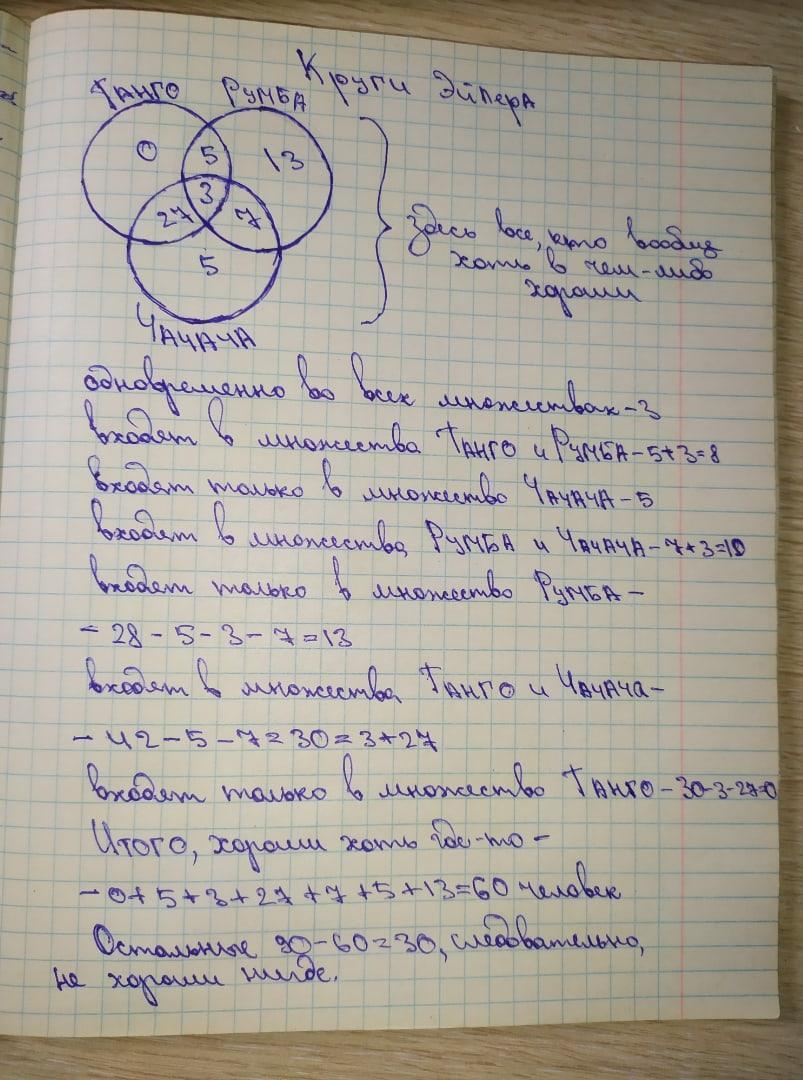 Круги Эйлера
ТАНГО РУМБА
0 5 13
3
27 7
5
ЧАЧАЧА
Здесь все, кто вообще
хоть в чем-либо
хороши
одновременно во всех множествах-3
входят в множества ТАНГО и РУМБА-5+3=8
входят только в множество ЧАЧАЧА-5
входят в множества РУМБА и ЧАЧАЧА-7+3=10
входят только в множество РУМБА-
- 28-5-3-7=13
входят в множества ТАНГО и ЧАЧАЧА-
- 42-5-7=30=3+27
входят только в множество ТАНГО-30-3-27=0
Итого, хороши хоть где-то-
- 0+5+3+27+7+5+13=60 человек
Остальные 90-60=30, следовательно,
не хороши нигде.